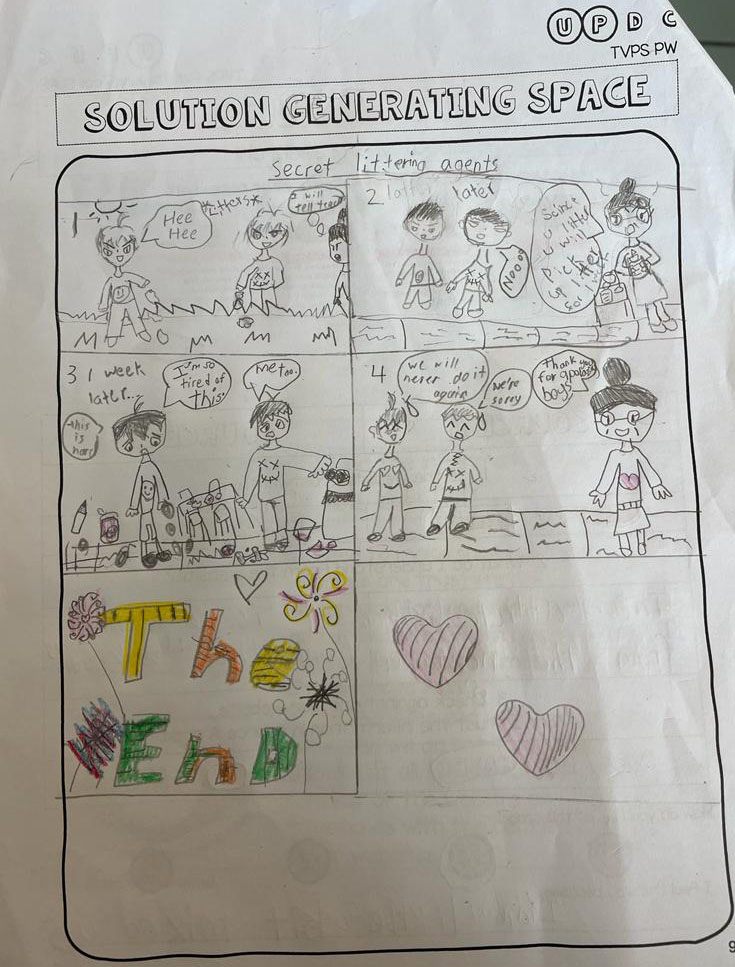 U P D C
TVPS PW
SOLUTION GENERATING SPACE
Secret littering agents
Hee
Hee
*litters*
I will
tell teacher
2 later
Nooo
Since
u litter
u will
pick
up litter
3 1 week
later...
this
is
hard
I'm so
tired of
this.
Me too.
4
we will
never do it
again
we're
sorry
Thank you
for apologising
boys
The
End
9